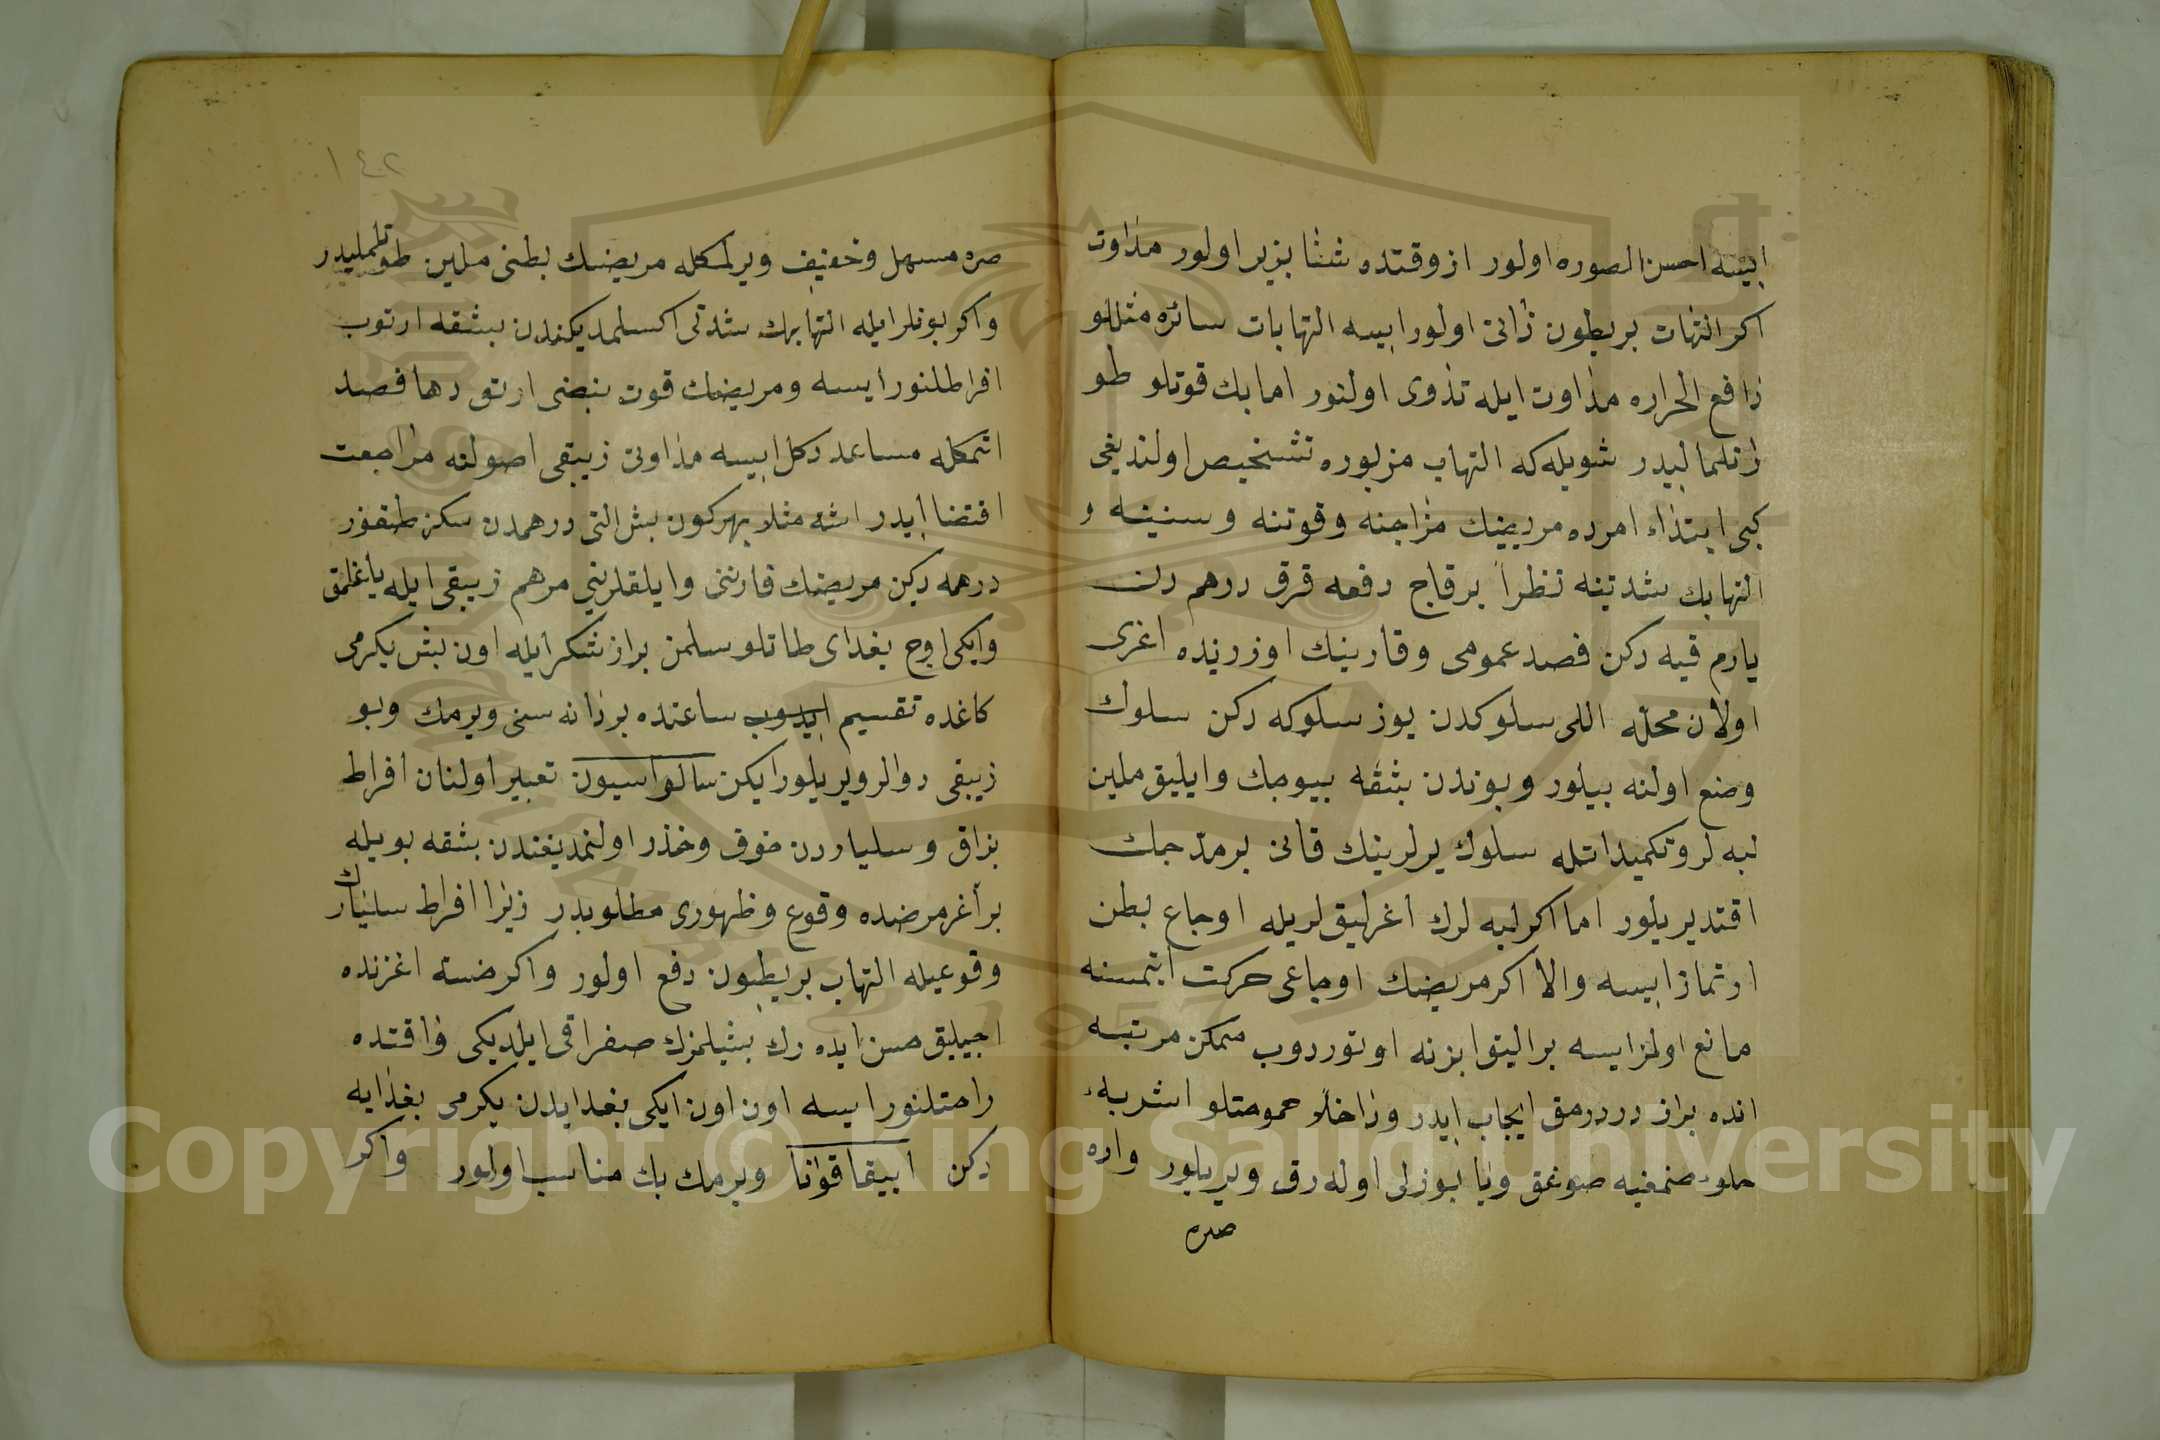 ايسه احسن الصوره اولور از وقتده شفا بزير اولور مداوت
اكر التهاب بريطون ذاتى اولور ايسه التهابات سائره مثللو
دافع الحراره مداوت ايله تداوى اولنور اما بك قوتلو طو
راتلمالىدر شويله كه التهاب مزبوره تشخيص اولنديغى
كبى ابتداء امرده مريضك مزاجنه وقوتنه وسنينه و
التهابك شدتينه نظراً برقاج دفعه قرق درهم دن
يارم قيه دكن فصد عمومى وقارينك اوزرنده اغرى
اولان محلّه اللى سلوكدن يوز سلوكه دكن سلوك
وضع اولنه بيلور وبوندن بشقه بيوجك وايليق ملين
لبه لر وتكميداتله سلوك يرلرينك قانى برمدّ جك
اقتديريلور اما اكر لبه لرك اغرليق لريله اوجاع بطن
ارتماز ايسه والا اكر مريضك اوجاعى حركت ايتمسنه
مانع اولمز ايسه براليتوا بزنه اوتوردوب ممكن مرتبه
انده براز دردرمق ايجاب ايدر وداخلاً حموضتلو اشربهء
حلوء صمغيه صوغق ويا بوزلى اوله رق ويريلور واره
صره
١٤٢
صره مسهل وخفيف ويرلمكله مريضك بطنى ملين طوتلمليدر
واكر بونلر ايله التهابك شدتى اكسلمديكندن بشقه ارتوب
افراطلنور ايسه ومريضك قوت نبضى ارتق دها فصد
اتمكله مساعد دكل ايسه مداوتى زيبقى اصولنه مراجعت
اقتضا ايدر اشه مثلا بهركون بش التى درهمدن سكز طقوز
درهمه دكن مريضك قارننى وايلقلريني مرهم زيبقى ايله ياغلمق
وايكى اوچ بغداى طاتلو سلمن براز شكر ايله اون بش يكرمى
كاغده تقسيم ايدوب ساعتده بردانه سنى ويرمك وبو
زيبقى دوالر ويريلور ايكن سالواسيون تعبير اولنان افراط
بزاق وسلياردن خوف وحذر اولنمديغندن بشقه بويله
بر آغر مرضده وقوع وظهورى مطلوبدر زيرا افراط سليارك
وقوعيله التهاب بريطون دفع اولور واكر خسته اغزنده
اجيليق حس ايده رك بشيلمزك صفرا قى ايلديكى واقتده
راحتلنور ايسه اون اون ايكى بغدايدن يكرمى بغدايه
دكن ايپقاقوانا ويرمك بك مناسب اولور واكر
Copyright © King Saud University
1957